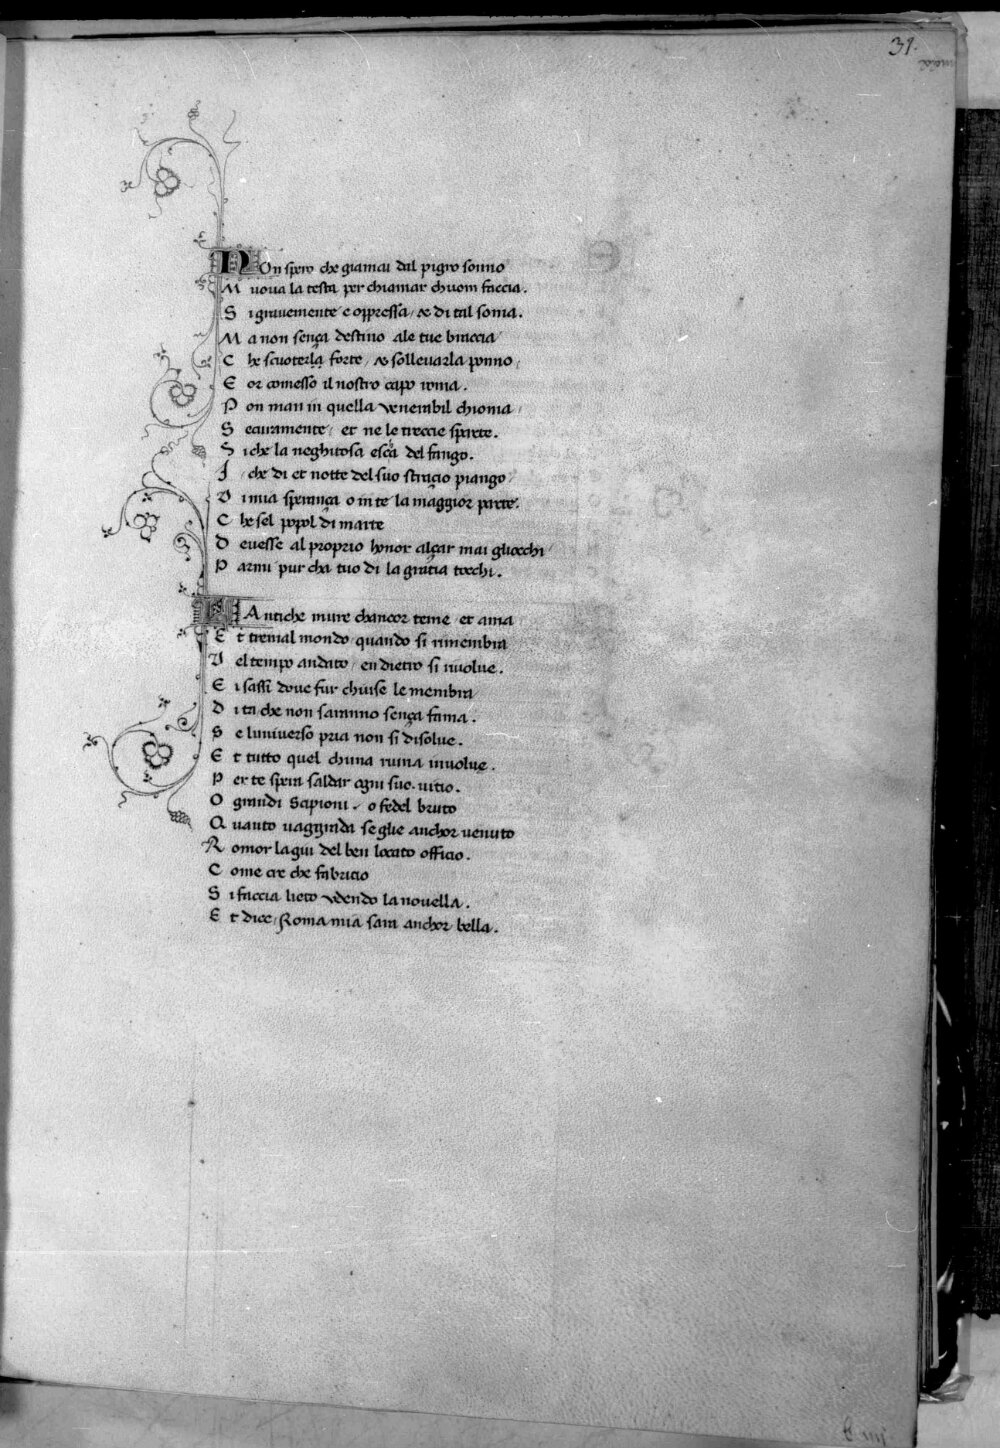 31.
NOn spero che giamai dal pigro sonno
Muova la testa per chiamar chuom faccia.
Si gravemente e oppressa / & di tal soma.
Ma non sença destino ale tue braccia
Che scuoterla forte / & sollevarla ponno /
E or comesso il nostro capo roma.
Pon man in quella venerabil chioma /
Securamente / et ne le treccie sparte.
Si che la neghitosa esca del fango.
I / che di et notte del suo stracio piango
Di mia sperança o in te la maggior parte.
Che sel popol di marte
Devesse al proprio honor alçar mai gliocchi
Parmi pur cha tuo di la gratia tocchi.
LAntiche mure chancor teme / et ama
Et tremal mondo / quando si rimembra
Del tempo andato / en dietro si rivolve.
Ei sassi dove fur chiuse le membra
Di ta che non saranno sença fama.
Se luniverso pria non si disolve.
Et tutto quel chuna ruina involve.
Per te spera saldar ogni suo vitio.
O grandi Scipioni / o fedel bruto
Quanto vaggrada se glie anchor venuto
Romor lagiu del ben locato officio.
Come cre che fabricio
Si faccia lieto vdendo la novella.
Et dice / Roma mia sara anchor bella.